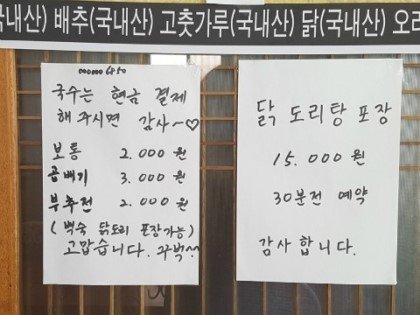 국내산) 배추(국내산) 고춧가루(국내산) 닭(국내산) 오리
국수는 현금 결제
해 주시면 감사~♡
보통 2.000원
곱배기 3.000원
부추전 2.000원
(백숙 닭도리 포장가능)
고맙습니다. 꾸벅~
닭 도리탕 포장
15.000원
30분전 예약
감사 합니다.